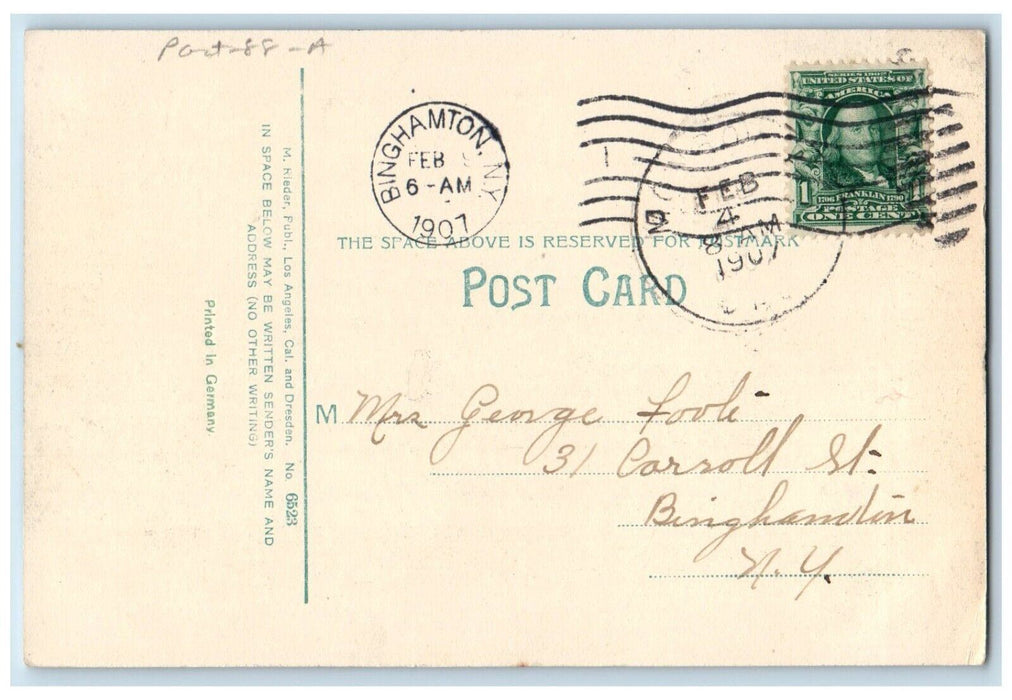 Part-88-A
BINGHAMTON, N.Y.
FEB
6-AM
1907
FEB
4
8 AM
1907
SERIES 1902
UNITED STATES OF
AMERICA
1
1706 FRANKLIN 1790
POSTAGE
ONE CENT
THE SPACE ABOVE IS RESERVED FOR POSTMARK
POST CARD
M Mrs George Foote
31 Carroll St.
Binghamton
N. Y.
M. Rieder, Publ., Los Angeles, Cal. and Dresden. No. 6523
IN SPACE BELOW MAY BE WRITTEN SENDER'S NAME AND
ADDRESS (NO OTHER WRITING)
Printed in Germany